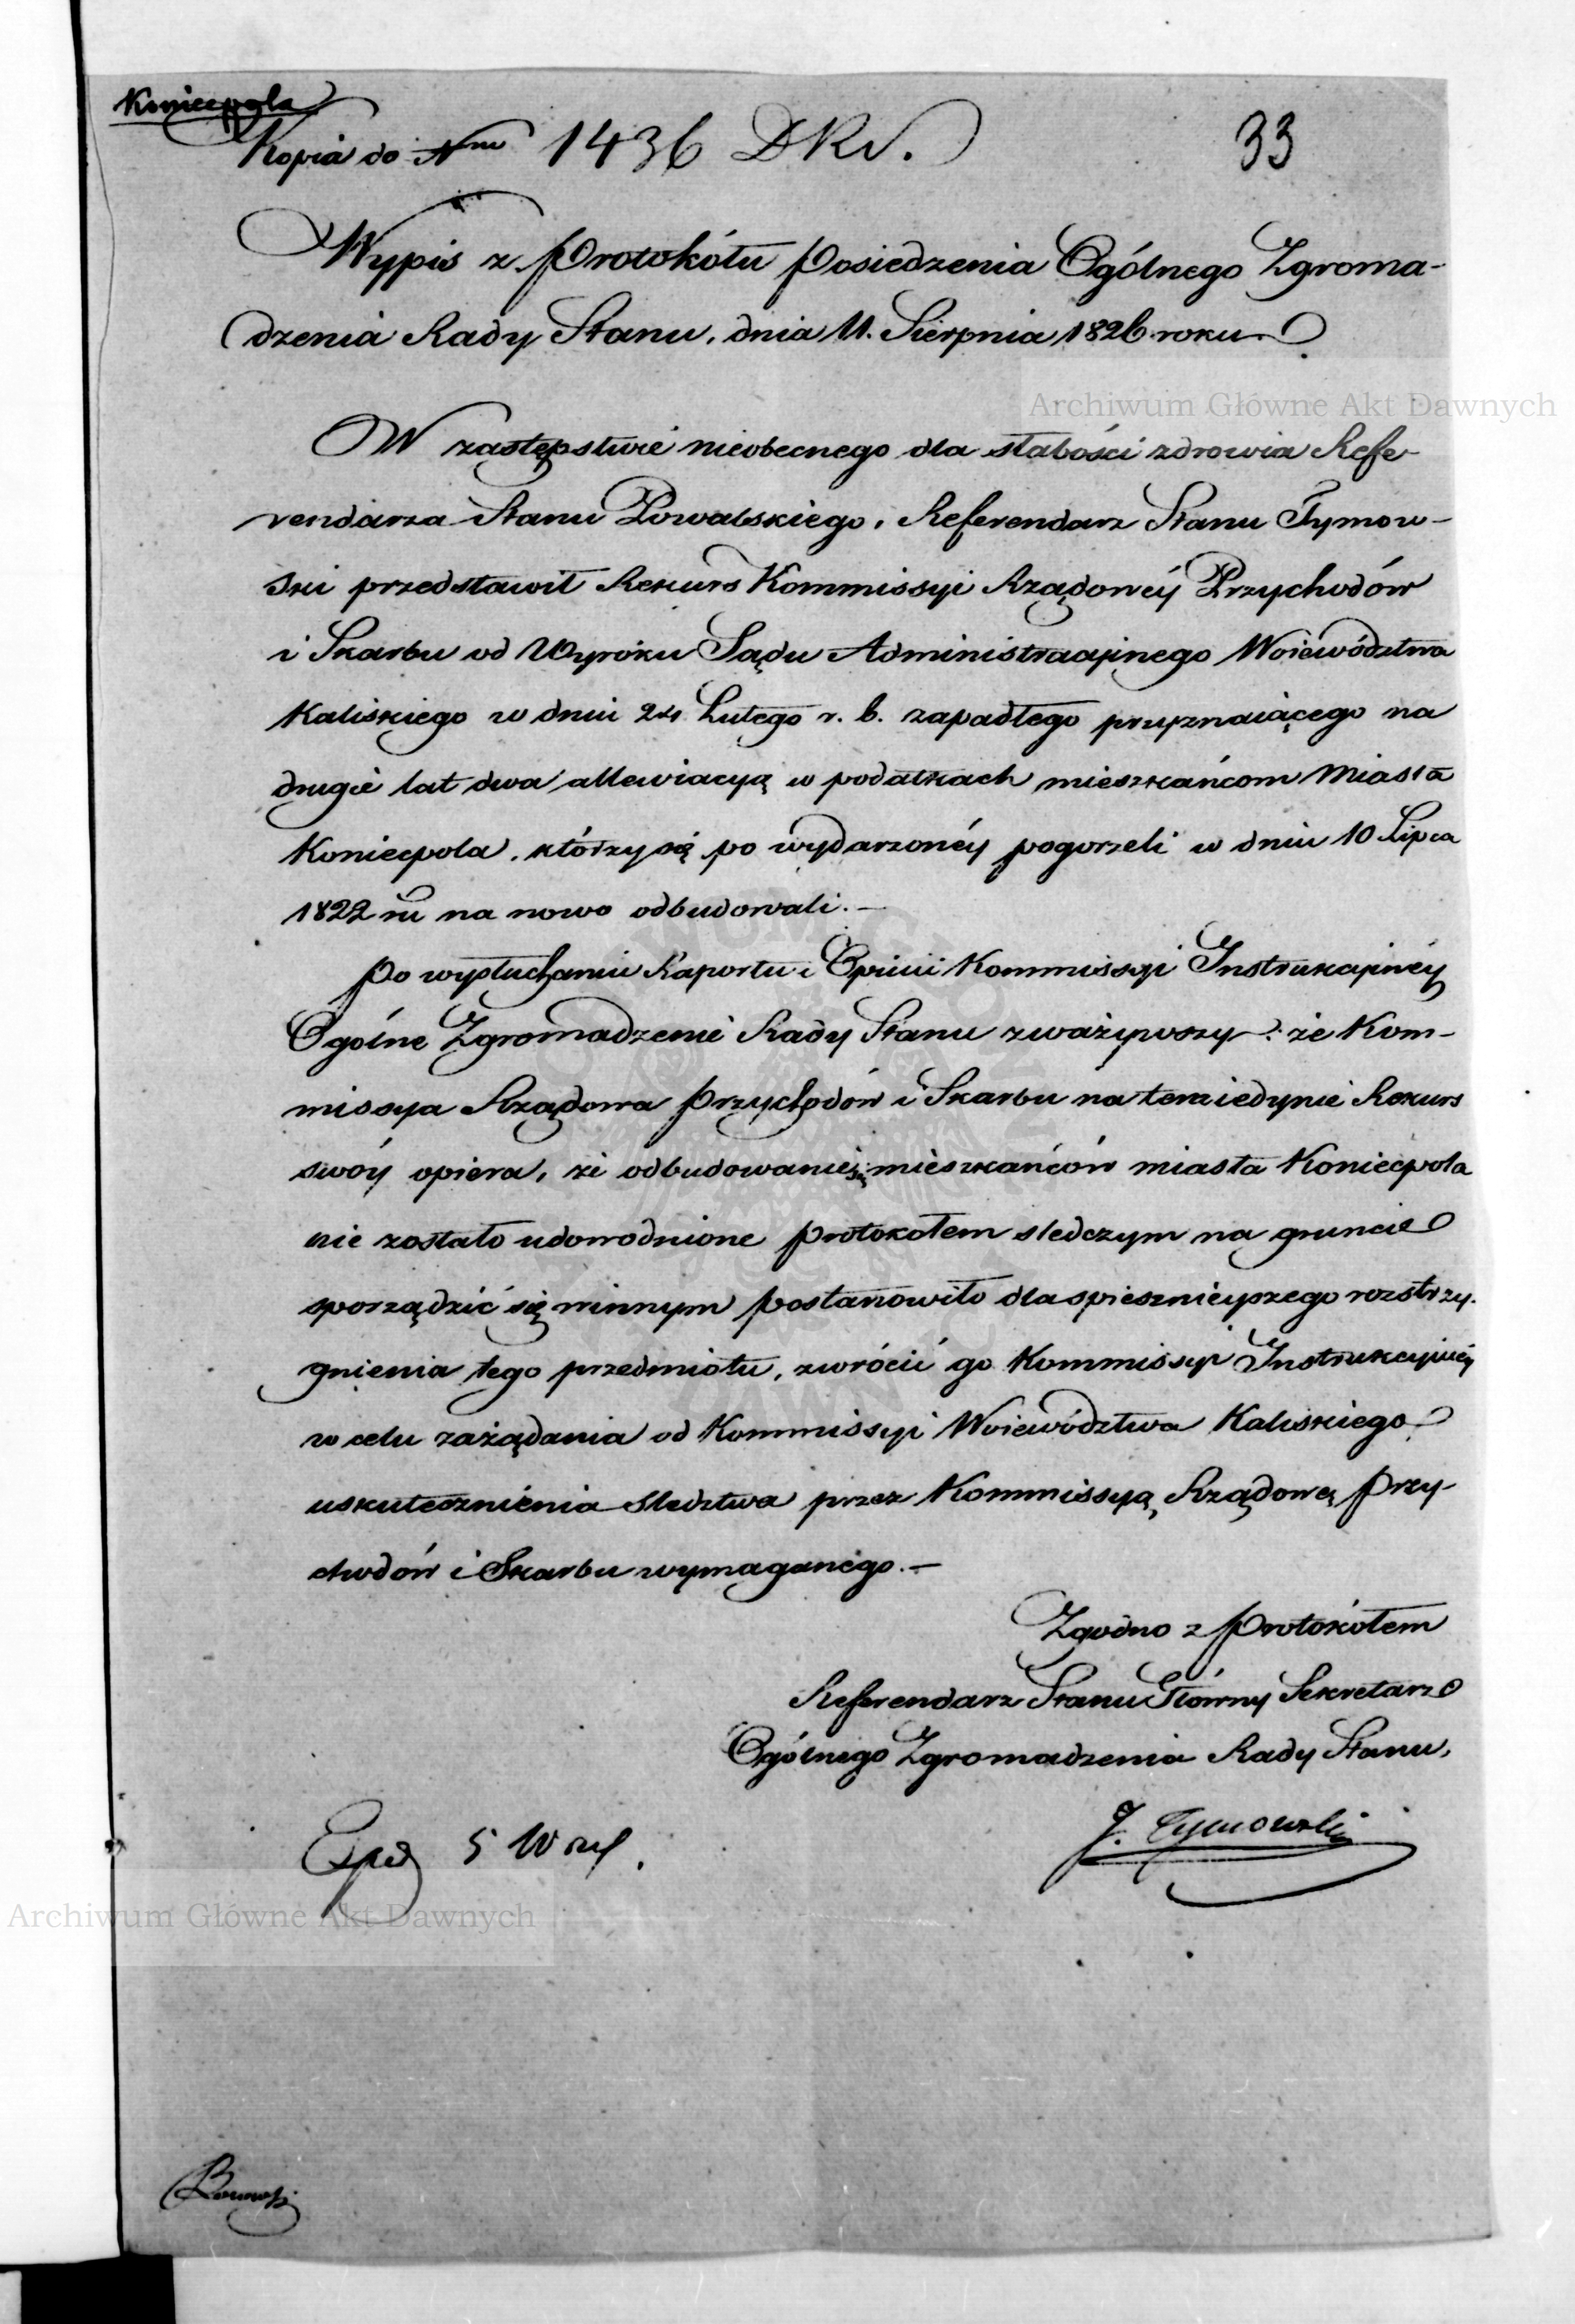 Koniecpola
Kopia do Nru 1436 DRS.
33
Wypis z Protokółu Posiedzenia Ogólnego Zgroma-
dzenia Rady Stanu, dnia 11. Sierpnia 1826 roku.
Archiwum Główne Akt Dawnych
W zastępstwie nieobecnego dla słabości zdrowia Refe-
rendarza Stanu Powalskiego, Referendarz Stanu Tymow-
ski przedstawił Rekurs Kommissyi Rządowéy Przychodów
i Skarbu od Wyroku Sądu Administracyinego Woiewództwa
Kaliskiego w dniu 24 Lutego r. b. zapadłego przyznaiącego na
drugie lat dwa allewiacyą w podatkach mieszkańcom Miasta
Koniecpola, którzy się po wydarzonéy pogorzeli w dniu 10 Lipca
1822 ru na nowo odbudowali.—
Po wysłuchaniu Raportu i Opinii Kommissyi Instrukcyinéy
Ogólne Zgromadzenie Rady Stanu zważywszy: że Kom-
missya Rządowa Przychodów i Skarbu na tem iedynie Rekurs
swóy opiera, że odbudowanie się mieszkańców miasta Koniecpola
nie zostało udowodnione protokołem sledczym na gruncie
sporządzić się winnym postanowiło dla spiesznieyszego rozstrzy-
gnienia tego przedmiotu, zwrócić go Kommissyi Instrukcyinéy
w celu zażądania od Kommissyi Woiewództwa Kaliskiego
uskutecznienia sledztwa przez Kommissyą Rządową Przy-
chodów i Skarbu wymaganego.—
Zgodno z Protokółem
Referendarz Stanu Główny Sekretarz
Ogólnego Zgromadzenia Rady Stanu,
J. Tymowski
Exped 5
Archiwum Główne Akt Dawnych